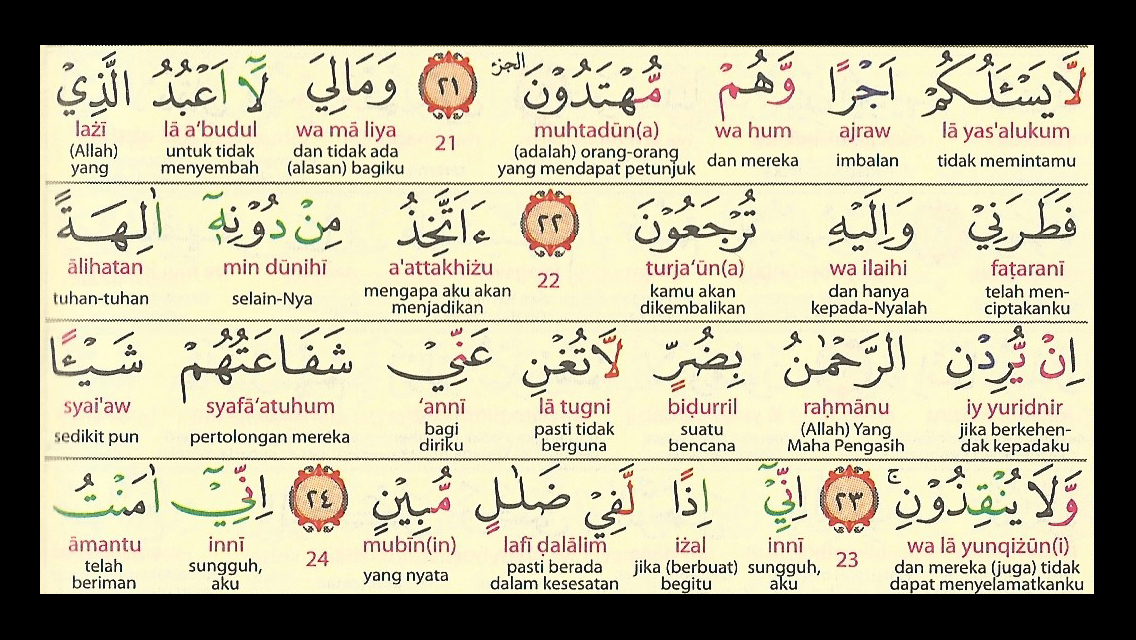 لَّا يَسْـَٔلُكُمْ اَجْرًا وَّهُمْ مُّهْتَدُوْنَ الجزء ٢١ وَمَالِيَ لَآ اَعْبُدُ الَّذِيْ
lā yas'alukum ajraw wa hum muhtadūn(a) 21 wa mā liya lā a‘budul lażī
tidak memintamu imbalan dan mereka (adalah) orang-orang yang mendapat petunjuk dan tidak ada (alasan) bagiku untuk tidak menyembah (Allah) yang
فَطَرَنِيْ وَاِلَيْهِ تُرْجَعُوْنَ ٢٢ ءَاَتَّخِذُ مِنْ دُوْنِهٖٓ اٰلِهَةً
faṭaranī wa ilaihi turja‘ūn(a) 22 a'attakhiżu min dūnihī ālihatan
telah men-ciptakanku dan hanya kepada-Nyalah kamu akan dikembalikan mengapa aku akan menjadikan selain-Nya tuhan-tuhan
اِنْ يُّرِدْنِ الرَّحْمٰنُ بِضُرٍّ لَّا تُغْنِ عَنِّيْ شَفَاعَتُهُمْ شَيْـًٔا
iy yuridnir raḥmānu biḍurril lā tugni ‘annī syafā‘atuhum syai'aw
jika berkehen-dak kepadaku (Allah) Yang Maha Pengasih suatu bencana pasti tidak berguna bagi diriku pertolongan mereka sedikit pun
وَّلَا يُنْقِذُوْنِۚ ٢٣ اِنِّيْٓ اِذًا لَّفِيْ ضَلٰلٍ مُّبِيْنٍ ٢٤ اِنِّيْٓ اٰمَنْتُ
wa lā yunqiżūn(i) 23 innī iżal lafī ḍalālim mubīn(in) 24 innī āmantu
dan mereka (juga) tidak dapat menyelamatkanku sungguh, aku jika (berbuat) begitu pasti berada dalam kesesatan yang nyata sungguh, aku telah beriman